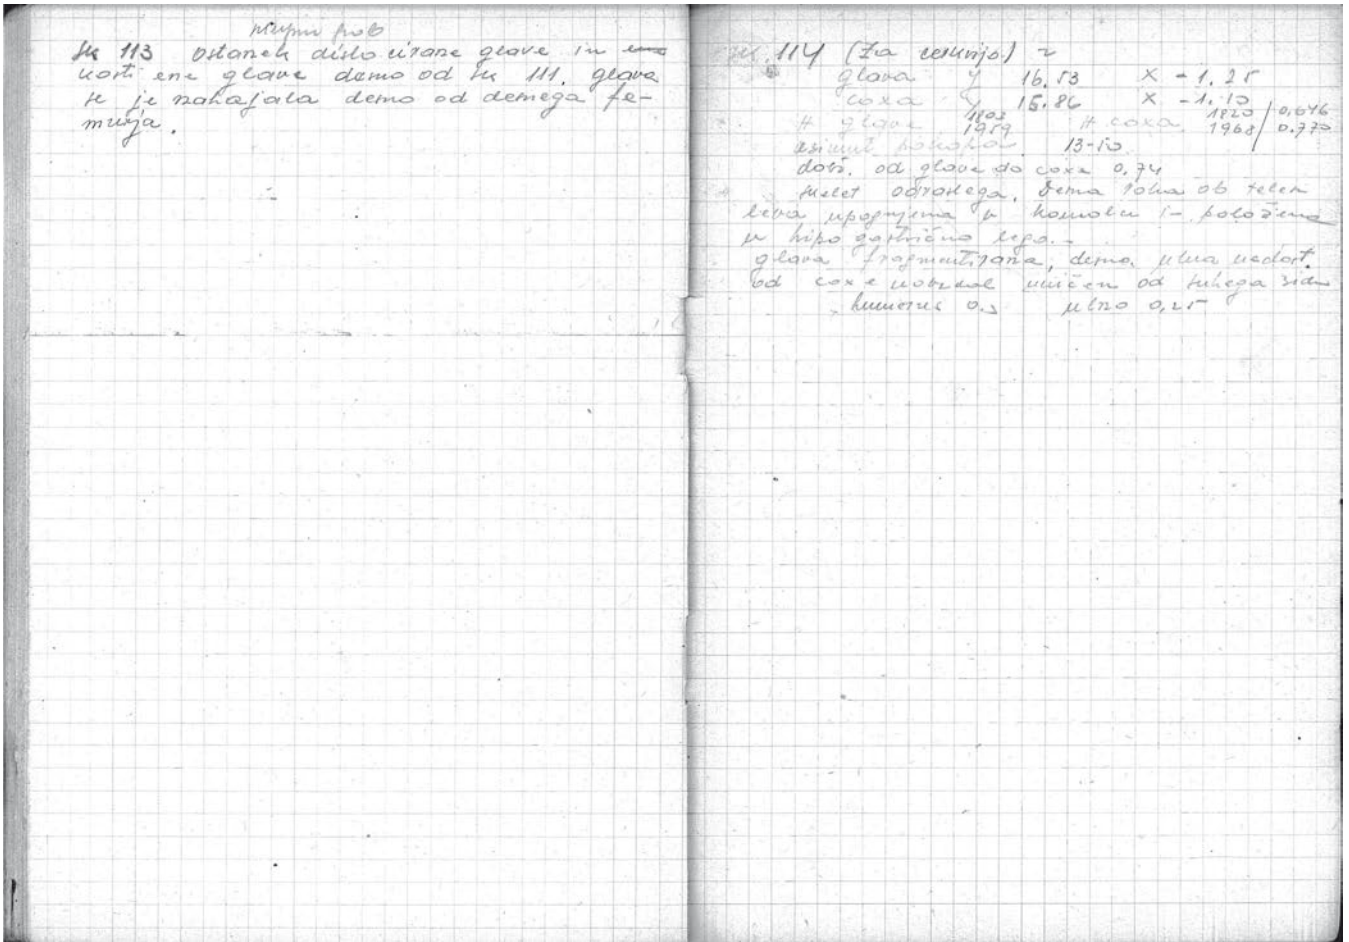 skupni grob
sk 113 ostanek dislocirane glave in
kosti ene glave desno od sk 111. glava
se je nahajala desno od desnega fe-
murja.
sk. 114 (za cerkvijo)
glava y 16.53 x - 1.25
coxa y 15.86 x - 1.10
# glave 1803 1959 # coxa 1820 / 0,646
1968 / 0.770
azimut pokopa 13-10
dolž. od glave do coxe 0,74
skelet odraslega. Desna roka ob telesu
leva upognjena v komolcu in položena
v hipogastrično lego.
glava fragmentirana, desna ulna nedost.
od coxe navzdol uničen od suhega zidu
humerus 0.3 ulna 0,25